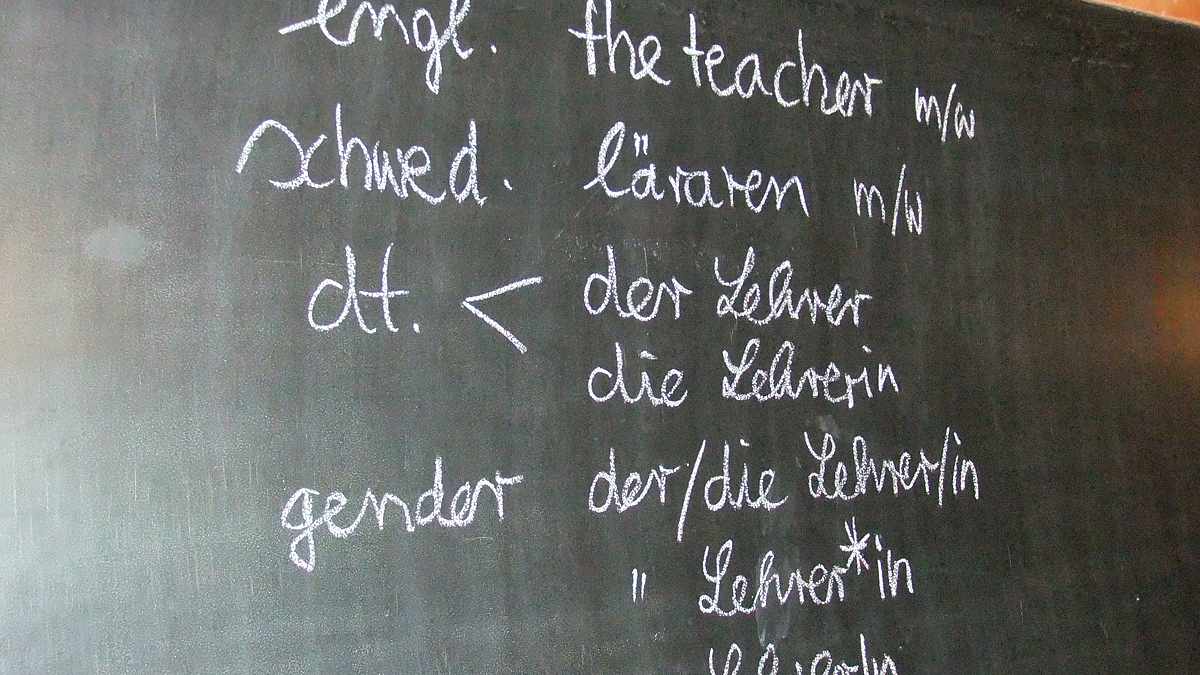 engl. the teacher m/w
schwed. läraren m/w
dt. < der Lehrer
die Lehrerin
gender der/die Lehrer/in
" Lehrer*in